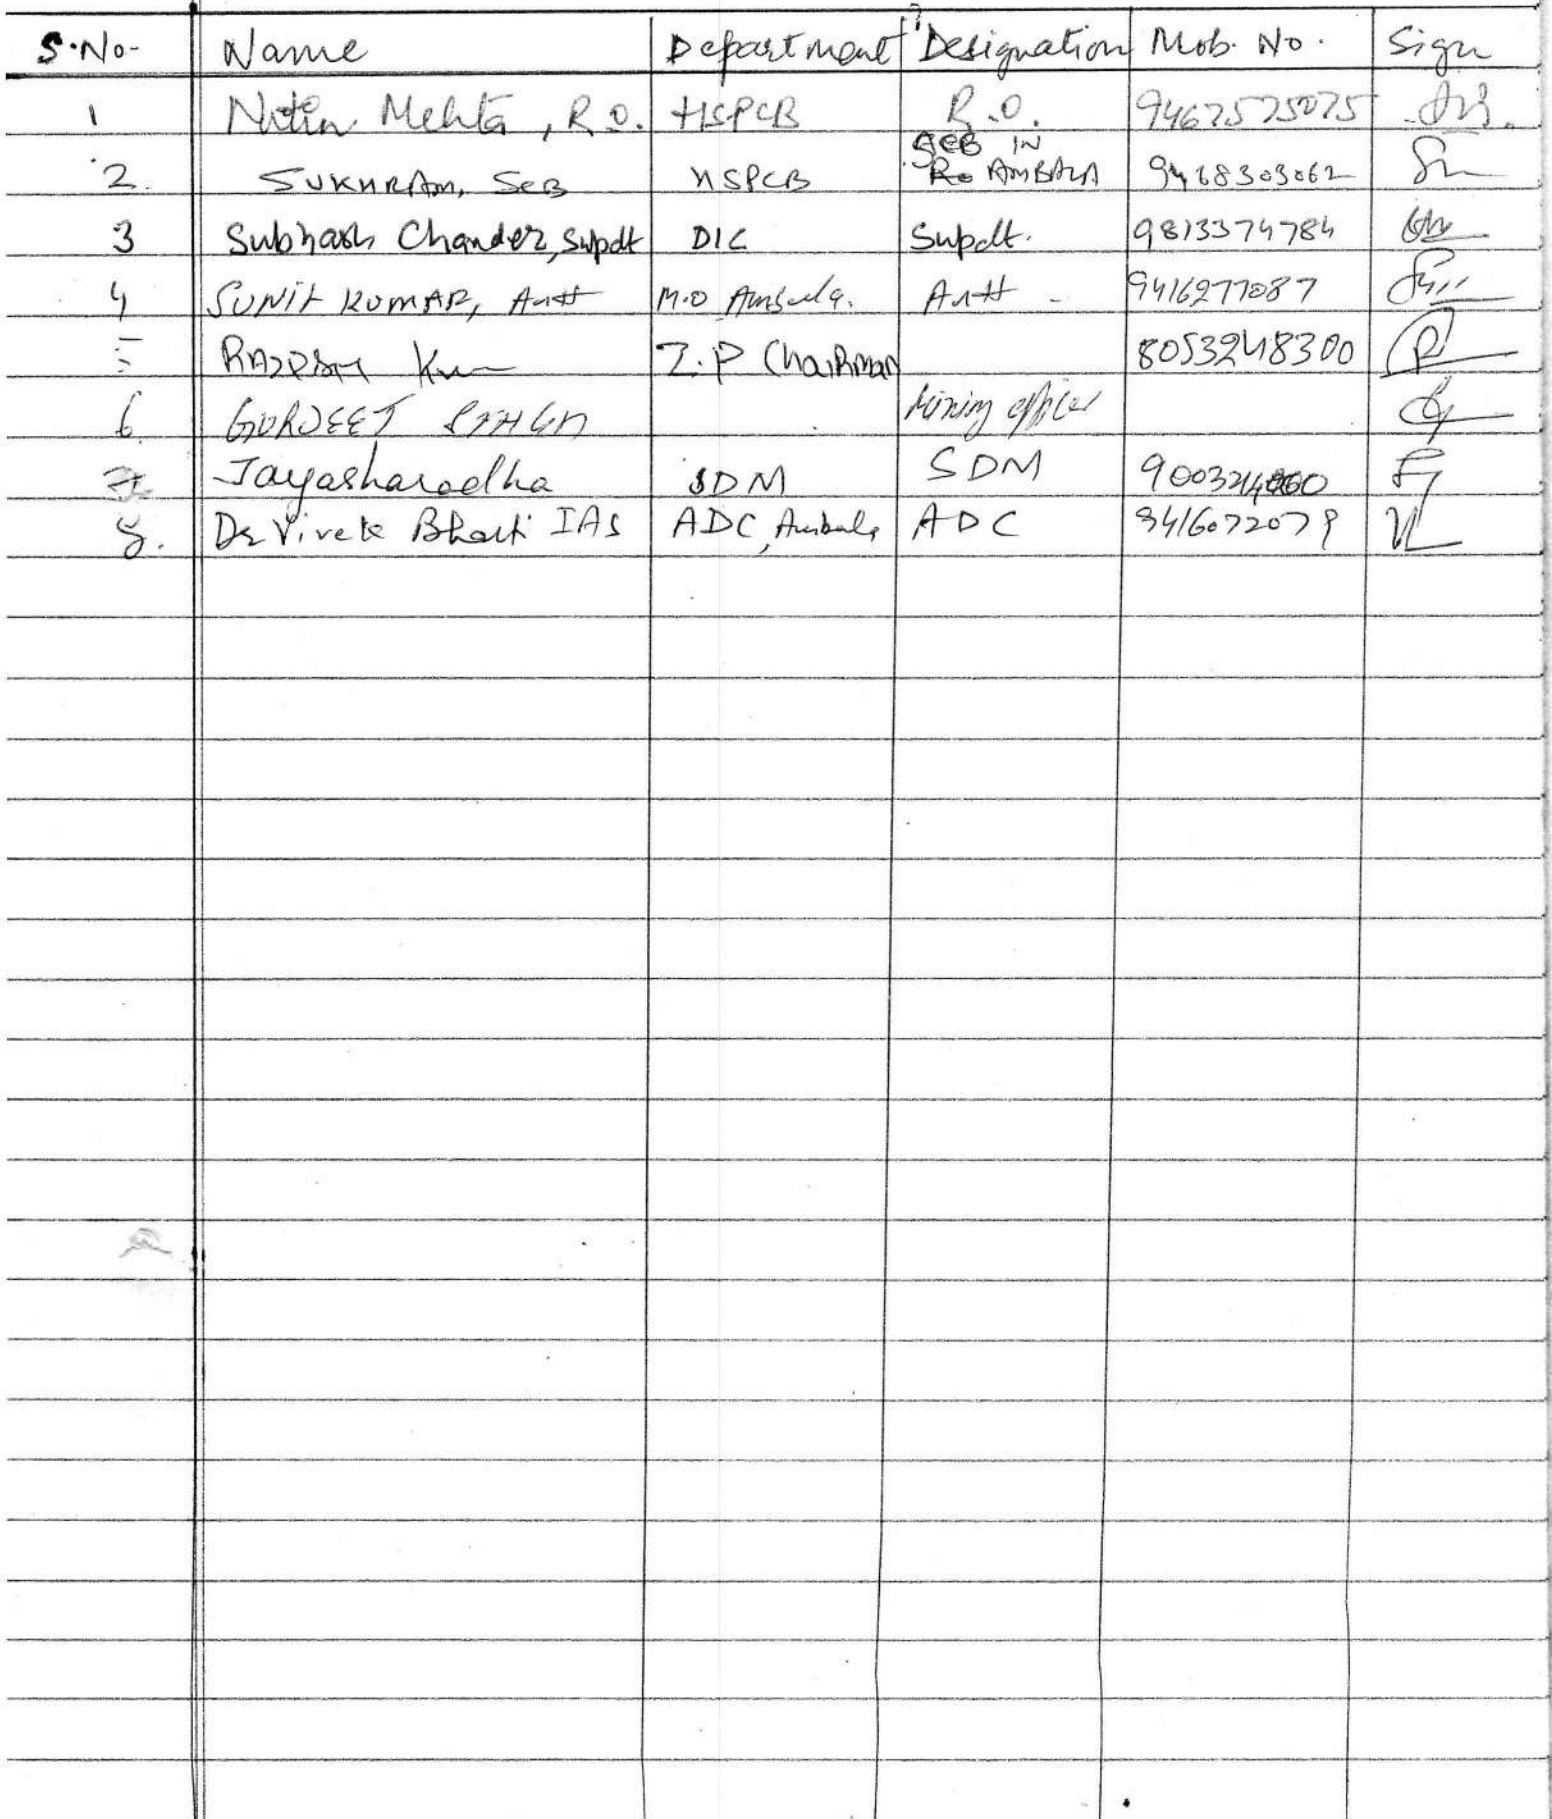 S.No- Name Department Designation Mob. No. Sign
1 Nitin Mehta, R.O. HSPCB R.O. 9467575075
2. SUKHRAM, SEB HSPCB SEB IN AMBALA 9468303062
3 Subhash Chander, Supdt DIC Supdt. 9813374784
4 SUNIL KUMAR, Astt M.O Ambala. Astt - 9416277087
5 Kum Z.P Chairman 8053248300
6. GURJEET SINGH Mining officer
7. Jayasharadha SDM SDM
8. Dr Vivek Bharti IAS ADC, Ambala ADC 9416072079